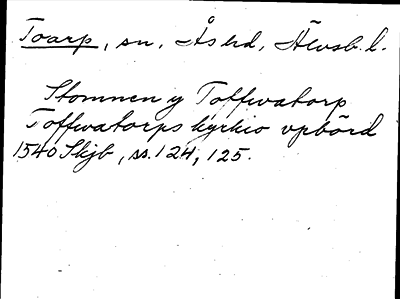 Toarp, sn, Ås hd, Älvsb. l.
Stomnen y Toffwatorp
Toffwatorps kyrkio vpbörd
1540 Skjb, ss. 124, 125.